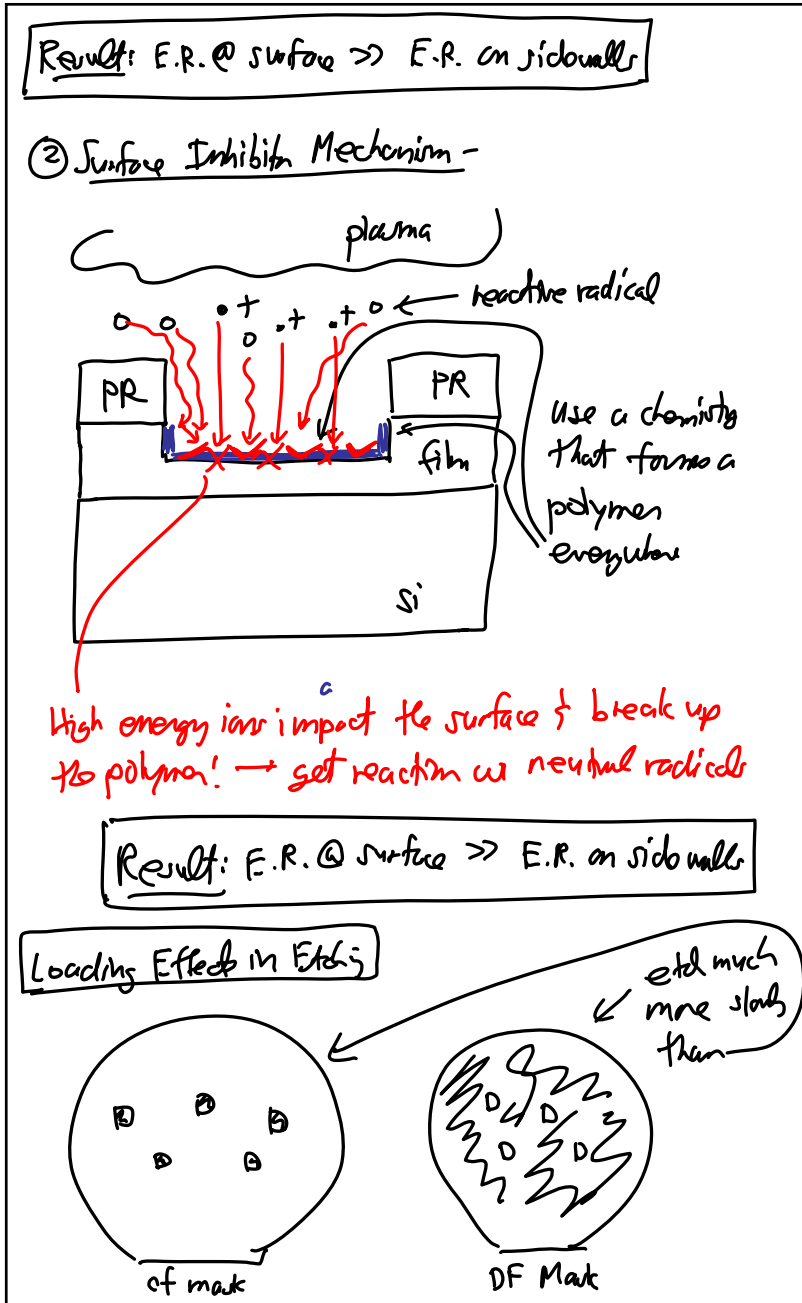 Result: E.R. @ surface >> E.R. on sidewalls
② Surface Inhibitor Mechanism -
plasma
reactive radical
PR
PR
film
use a chemistry
that forms a
polymer
everywhere
Si
High energy ions impact the surface & break up
the polymer! → get reaction w/ neutral radicals
Result: E.R. @ surface >> E.R. on sidewalls
Loading Effects in Etching
etch much
more slowly
than
D D
D D
cf mask
DF Mask